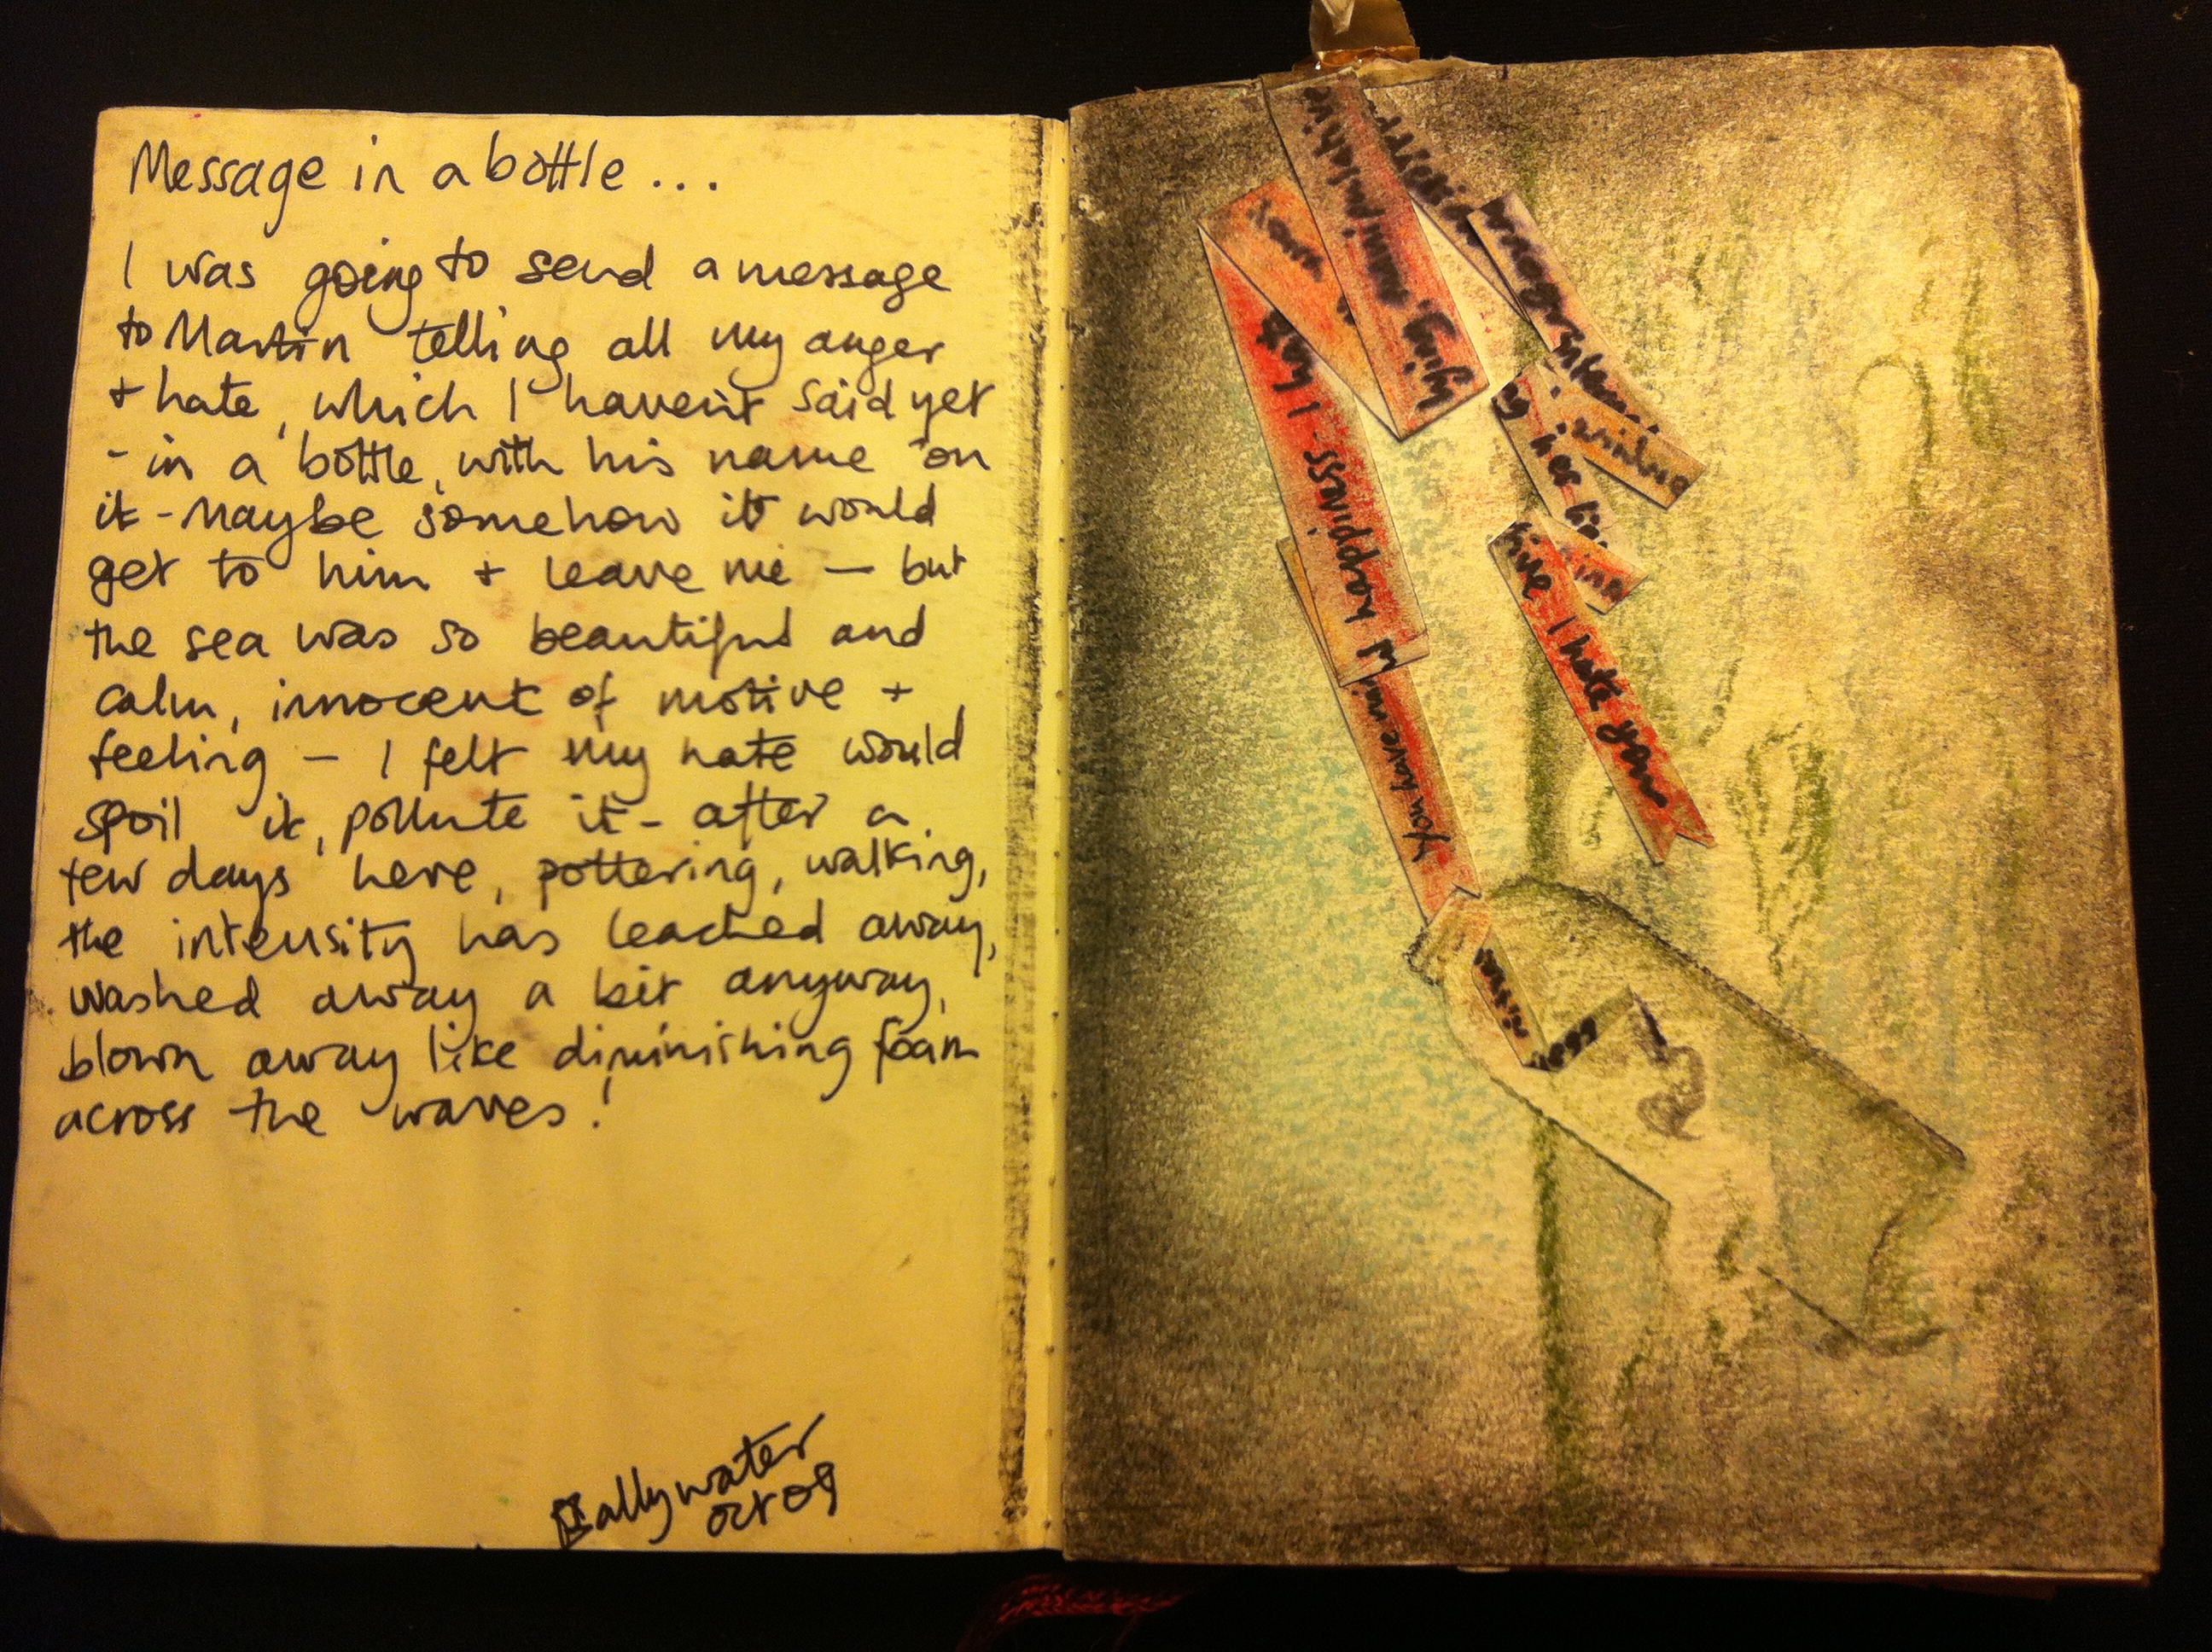 Message in a bottle...
I was going to send a message
to Martin telling all my anger
+ hate, which I haven't said yet
- in a bottle, with his name on
it - Maybe somehow it would
get to him + leave me — but
the sea was so beautiful and
calm, innocent of motive +
feeling — I felt my hate would
spoil it, pollute it - after a
few days here, pottering, walking,
the intensity has leached away,
washed away a bit anyway,
blown away like diminishing foam
across the waves!
Ballywater
Oct 09
lying, manipulative
happiness. I hate
You have
hive I hate you